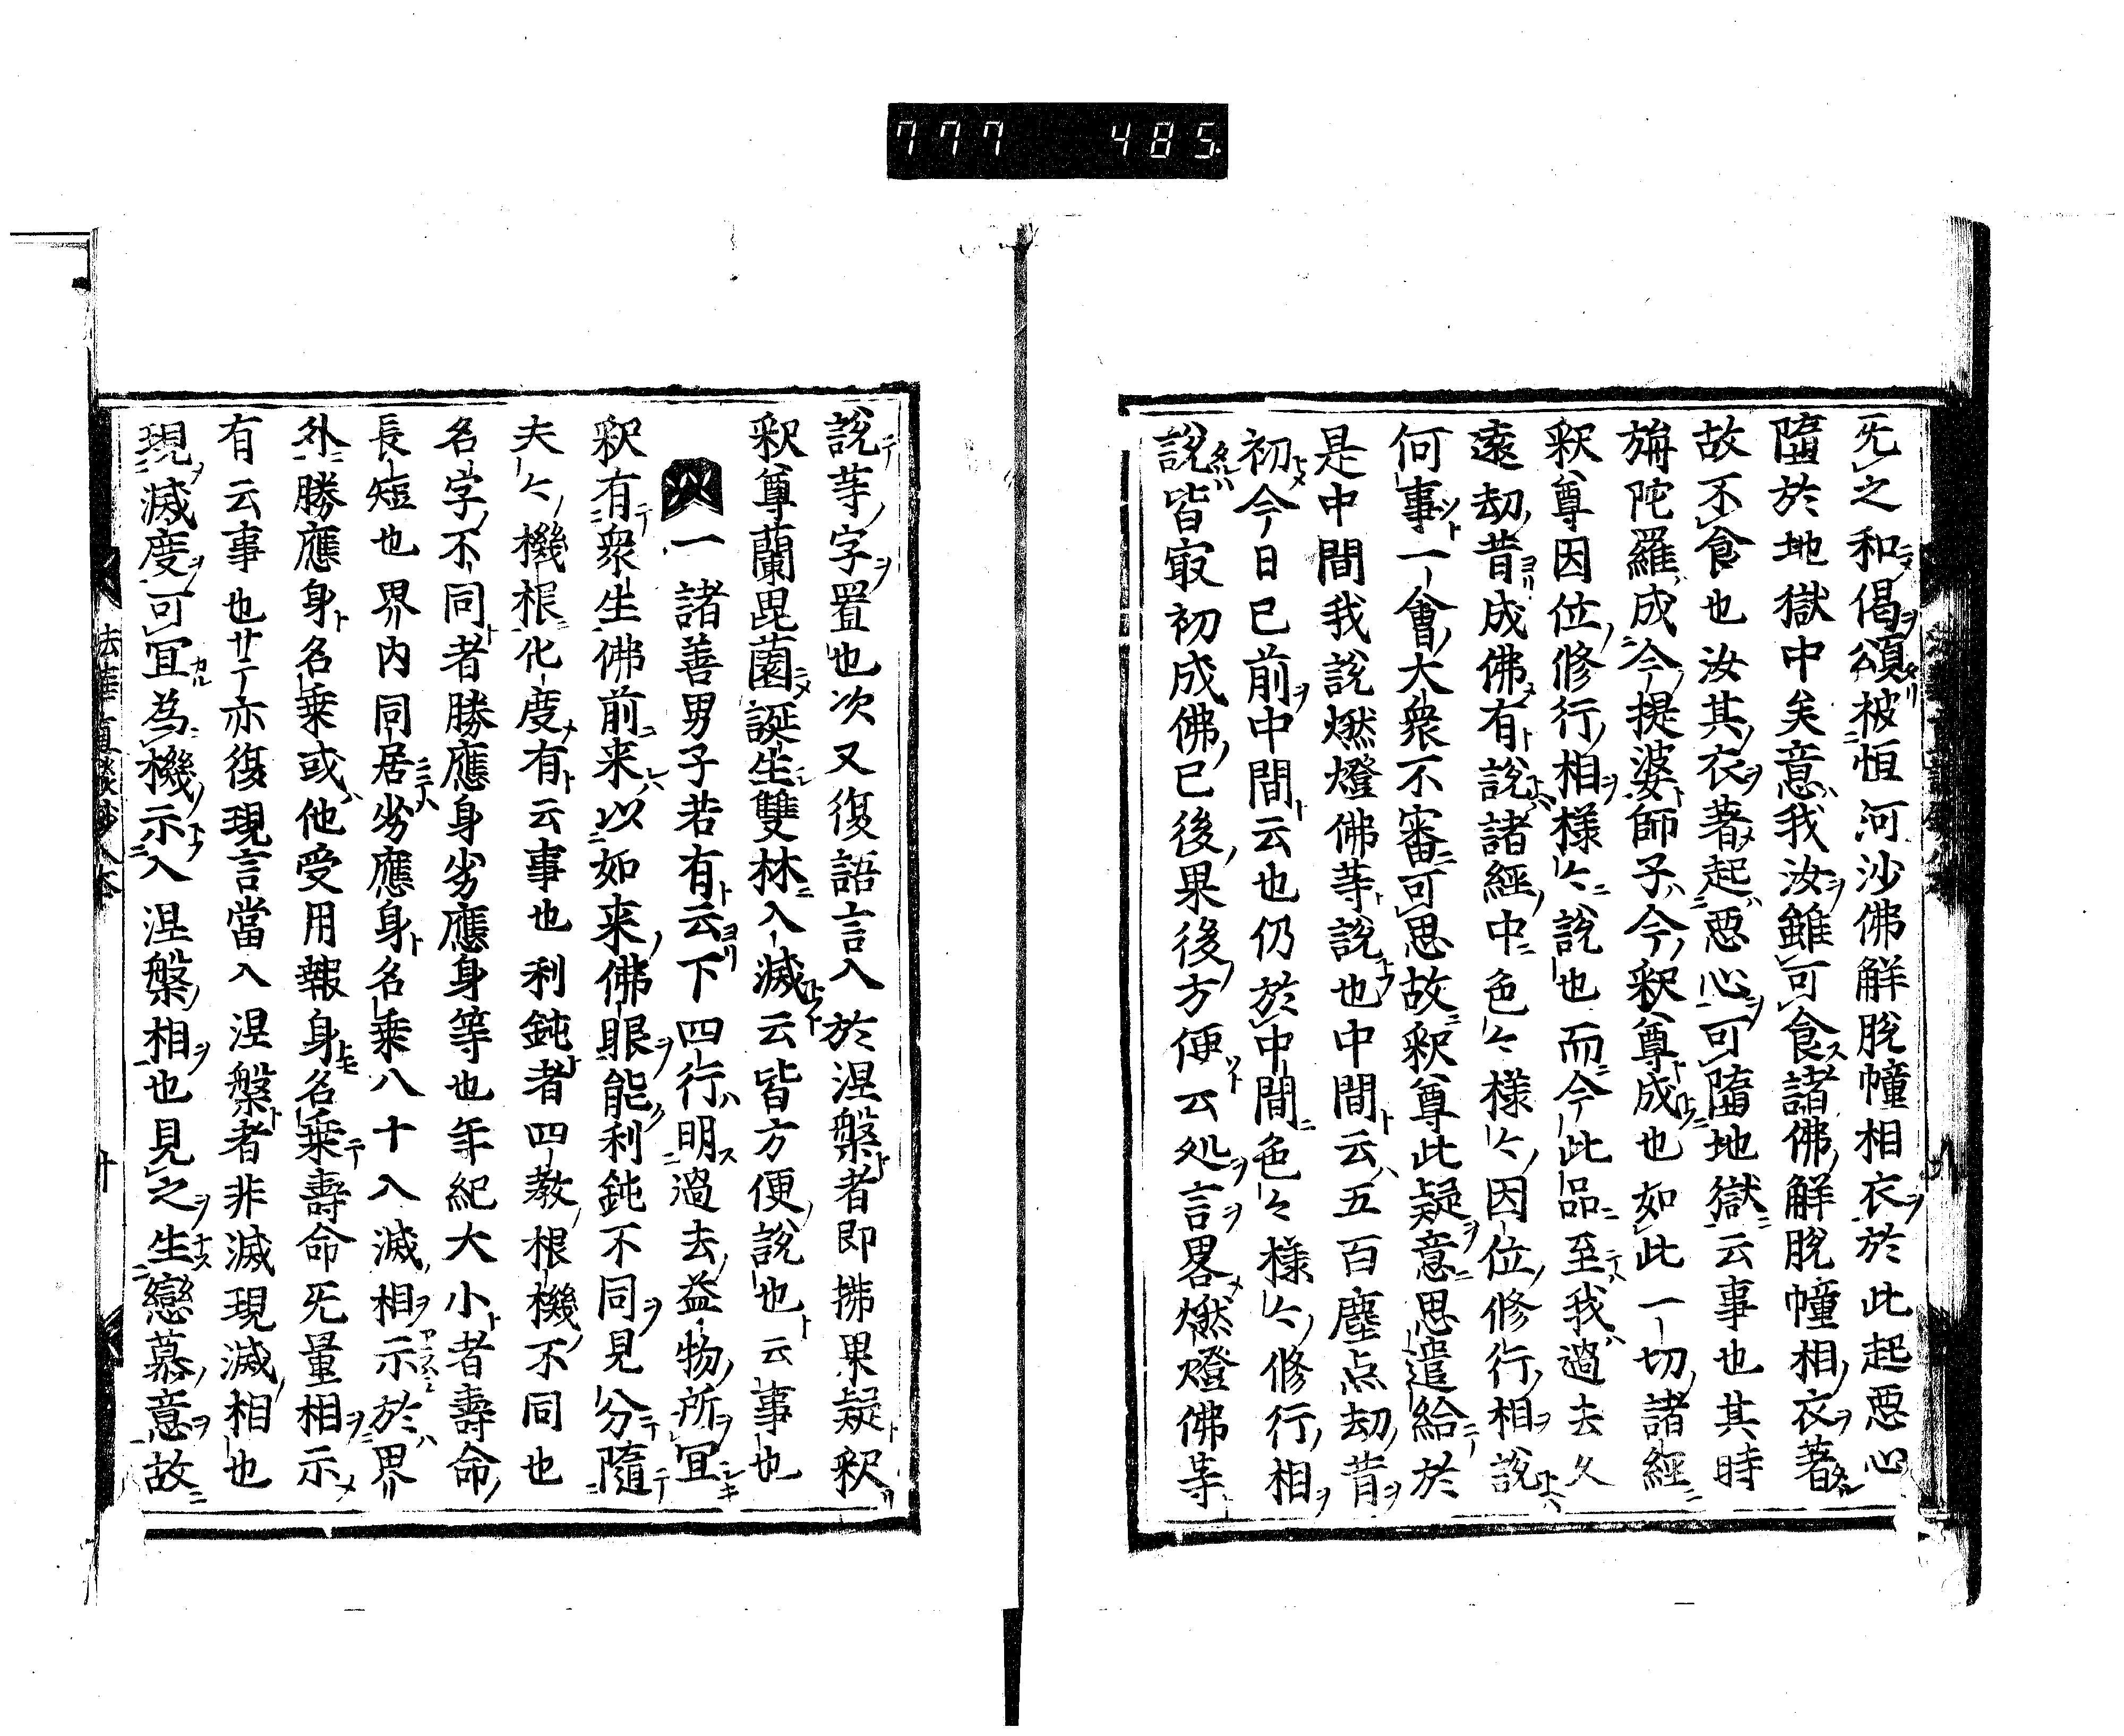 777 485.
旡之和偈頌被恒河沙佛解脫幢相衣於此起惡心
墮於地獄中矣意我汝雖可食諸佛解脫幢相衣著
故不食也汝其衣著起惡心可墮地獄云事也其時
旃陀羅成今提婆師子今釈尊成也如此一切諸經
釈尊因位修行相様〻說也而今此品至我過去久
遠劫昔成佛有說諸經中色〻様〻因位修行相說
何事一會大衆不審可思故釈尊此疑意思遣給於
是中間我說燃燈佛等說也中間云五百塵点劫昔
初今日已前中間云也仍於中間色〻様〻修行相
說皆㝡初成佛已後果後方便云処言畧燃燈佛等
說等字置也次又復語言入於涅槃者即拂果疑釈
釈尊蘭毘薗誕生雙林入滅云皆方便說也云事也
次一諸善男子若有云下四行明過去益物所冝
釈有衆生佛前来以如来佛眼能利鈍不同見分隨
夫〻機根化度有云事也利鈍者四教根機不同也
名字不同者勝應身劣應身等也年紀大小者壽命
長短也界内同居劣應身名乗八十入滅相示於界
外勝應身名乗或他受用報身名乗壽命旡量相示
有云事也廿丁亦復現言當入涅槃者非滅現滅相也
現滅度可冝為機示入涅槃相也見之生戀慕意故